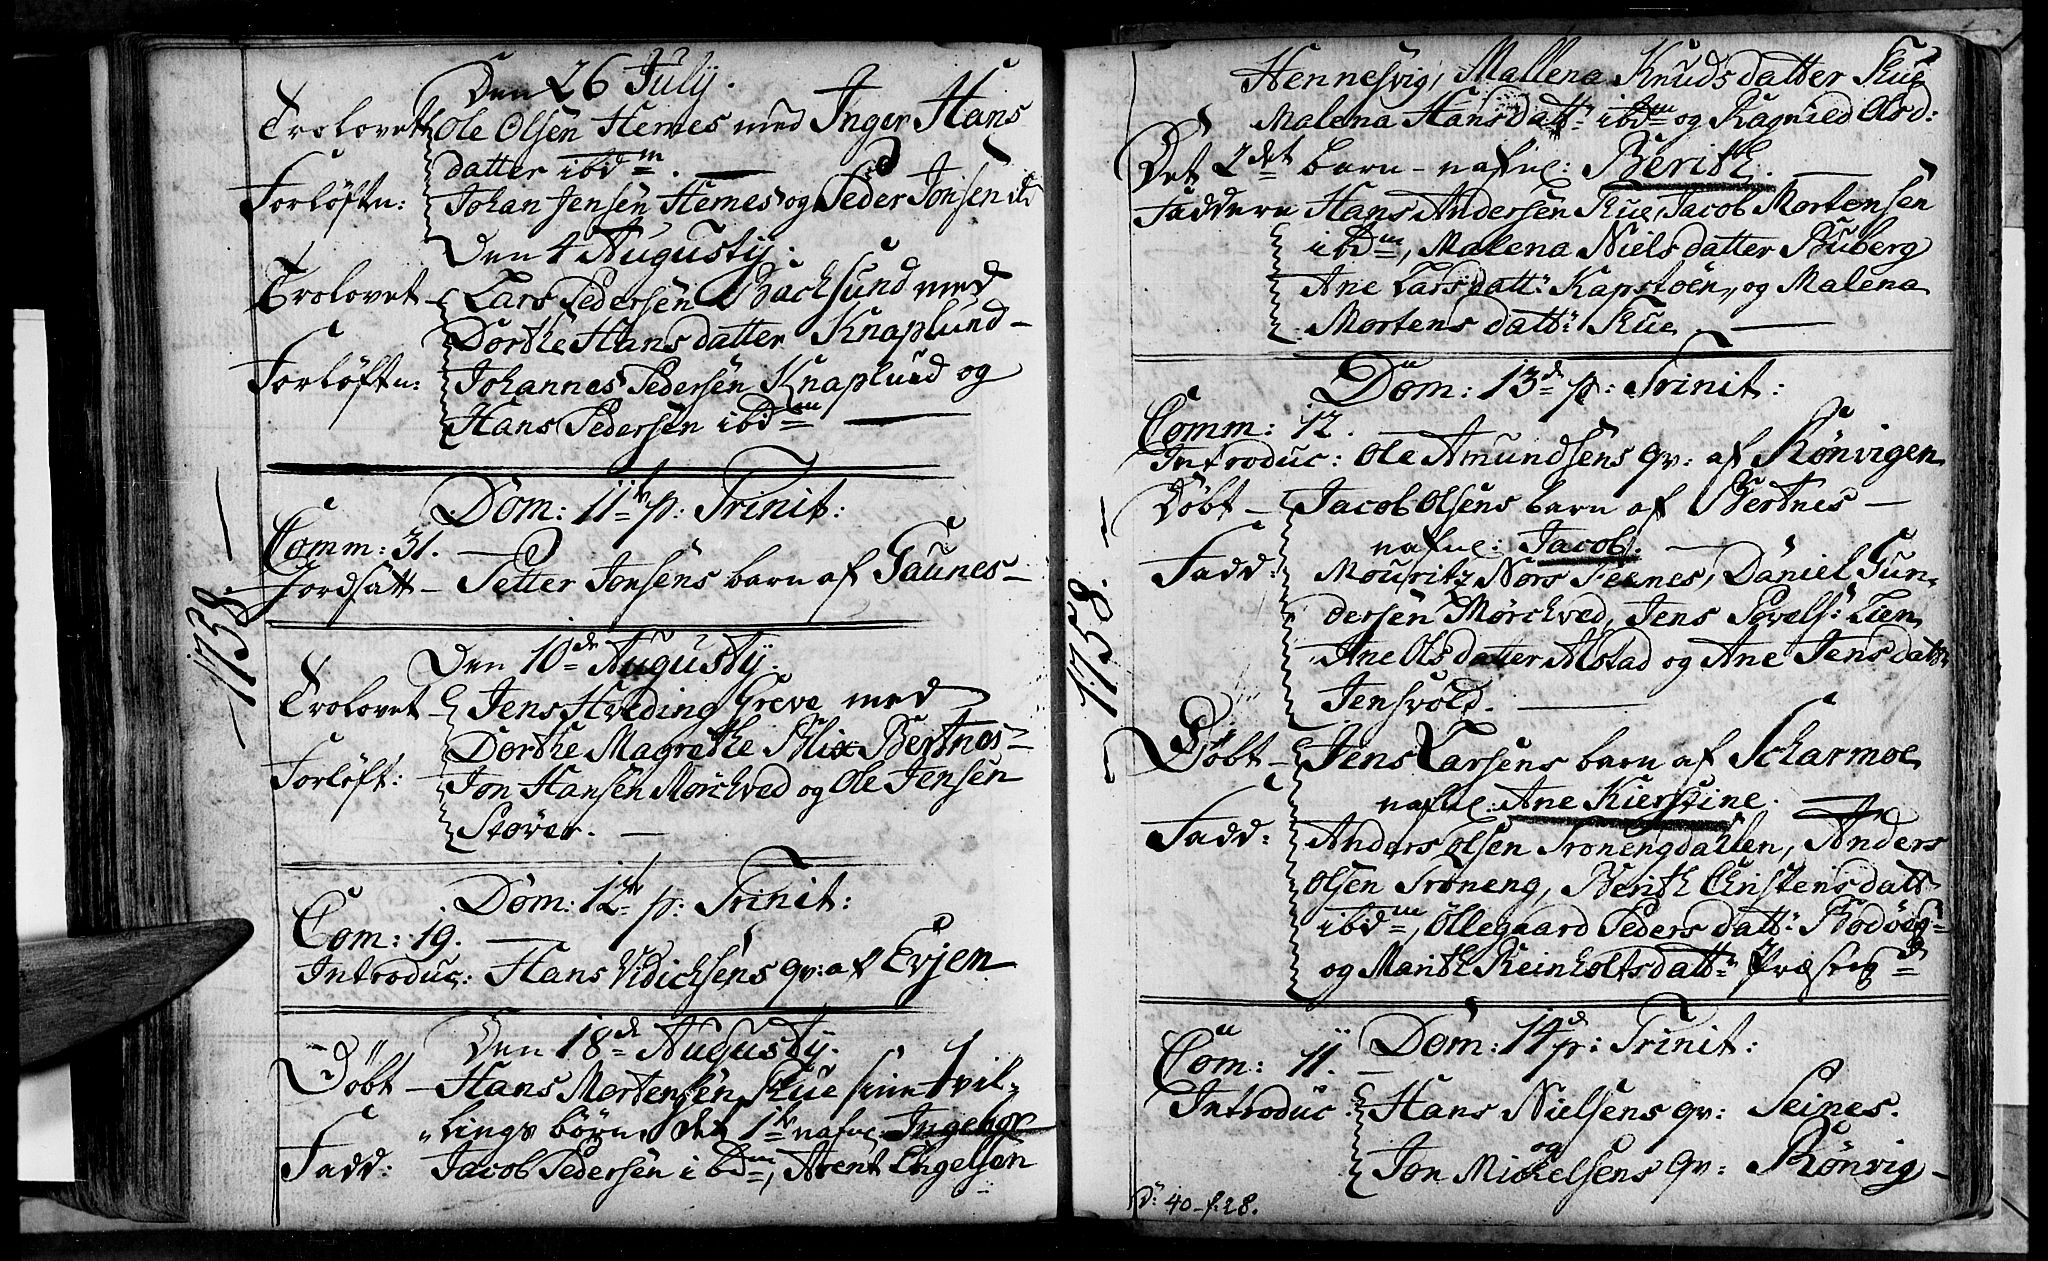 1758
Den 26 July.
Trolovet Ole Olsen Hernes med Inger Hans
datter ibidm. —
Forløftn: Johan Jensen Hernes og Peder Jonsen ibd
Den 4 Augustij:
Trolovet – Lars Pedersen Bachsund med
Dorthe Hansdatter Knaplund –
Forløftn: Johannes Pedersen Knaplund og
Hans Pedersen ibdm —
Dom: 11te p: Trinit:
Comm: 31. —
Jordsatt – Petter Jonsens barn af Gaunes –
Den 10de Augustij.
Trolovet – Jens Hveding Greve med
Dorthe Magrethe Blix Bertnes –
Forløft: Jon Hansen Mørchved og Ole Jensen
Støver. —
Dom: 12te p: Trinit:
Com: 19. —
Introduc: Hans Didichsens qv: af Evjen
Den 18de Augustij.
Døbt – Hans Mortensen Kue sine tvil-
lings børn, det 1te nafnl. Ingebor
Fadd: Jacob Pedersen ibdm, Arent Engelsen
1758.
Hernesvig, Mallena Knudsdatter Kue
Malena Hansdatt: ibdm og Ragnild Olsd:
Det 2det barn – nafnl: Berith. —
Faddere Hans Andersen Kue, Jacob Mortensen
ibdm, Malena Nielsdatter Buberg
Ane Larsdatt: Kapstøen, og Malena
Mortensdatt: Kue. —
Dom: 13de p: Trinit:
Comm: 12. —
Introduc: Ole Amundsens qv: af Rønvigen
Døbt – Jacob Olsens barn af Bertnes –
nafnl: Jacob. —
Fadd: Mouritz Nors Fernes, Daniel Gun-
dersen Mørchved, Jens Povels: Lien
Ane Olsdatter Alstad og Ane Jensdatt:
Jensvold. —
Døbt – Jens Larsens barn af Scharmoe
nafnl: Ane Kierstine. —
Fadd: Anders Olsen Tronengdallen, Anders
Olsen Troneng, Berith Christensdatt:
ibdm, Ollegaard Pedersdatt: Bodøeg-
og Marith Reinholtsdatt: Præsteg:d
Dom: 14de p: Trinit:
Com: 11. —
Introduc: Hans Nielsens qv: Seines.
og
Jon Mickelsens qv: Rønvig –
D: 40 – f: 28.